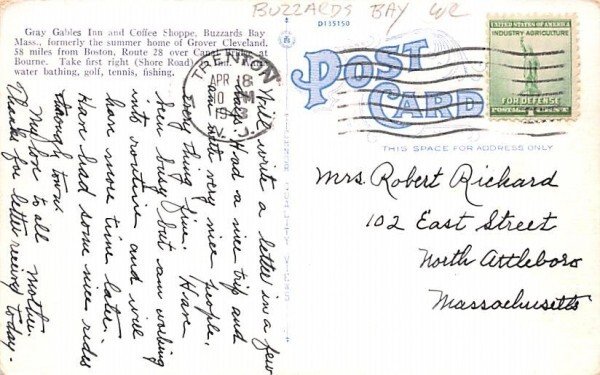 BUZZARDS BAY
D135150
Gray Gables Inn and Coffee Shoppe, Buzzards Bay
Mass., formerly the summer home of Grover Cleveland.
58 miles from Boston, Route 28 over Canal Bridge at
Bourne. Take first right (Shore Road)
water bathing, golf, tennis, fishing.
TRENTON
APR 18
PM
N. J.
UNITED STATES OF AMERICA
INDUSTRY-AGRICULTURE
FOR DEFENSE
POST CARD
THIS SPACE FOR ADDRESS ONLY
Mrs. Robert Richard
102 East Street
North Attleboro
Massachusetts
Will write a letter in a few
days. Had a nice trip and
am with very nice people,
every thing fine. Have
been busy but am working
into routine and will
have more time later.
Have had some nice rides
through town.
My love to all
Mother.
Thanks for letter received today-